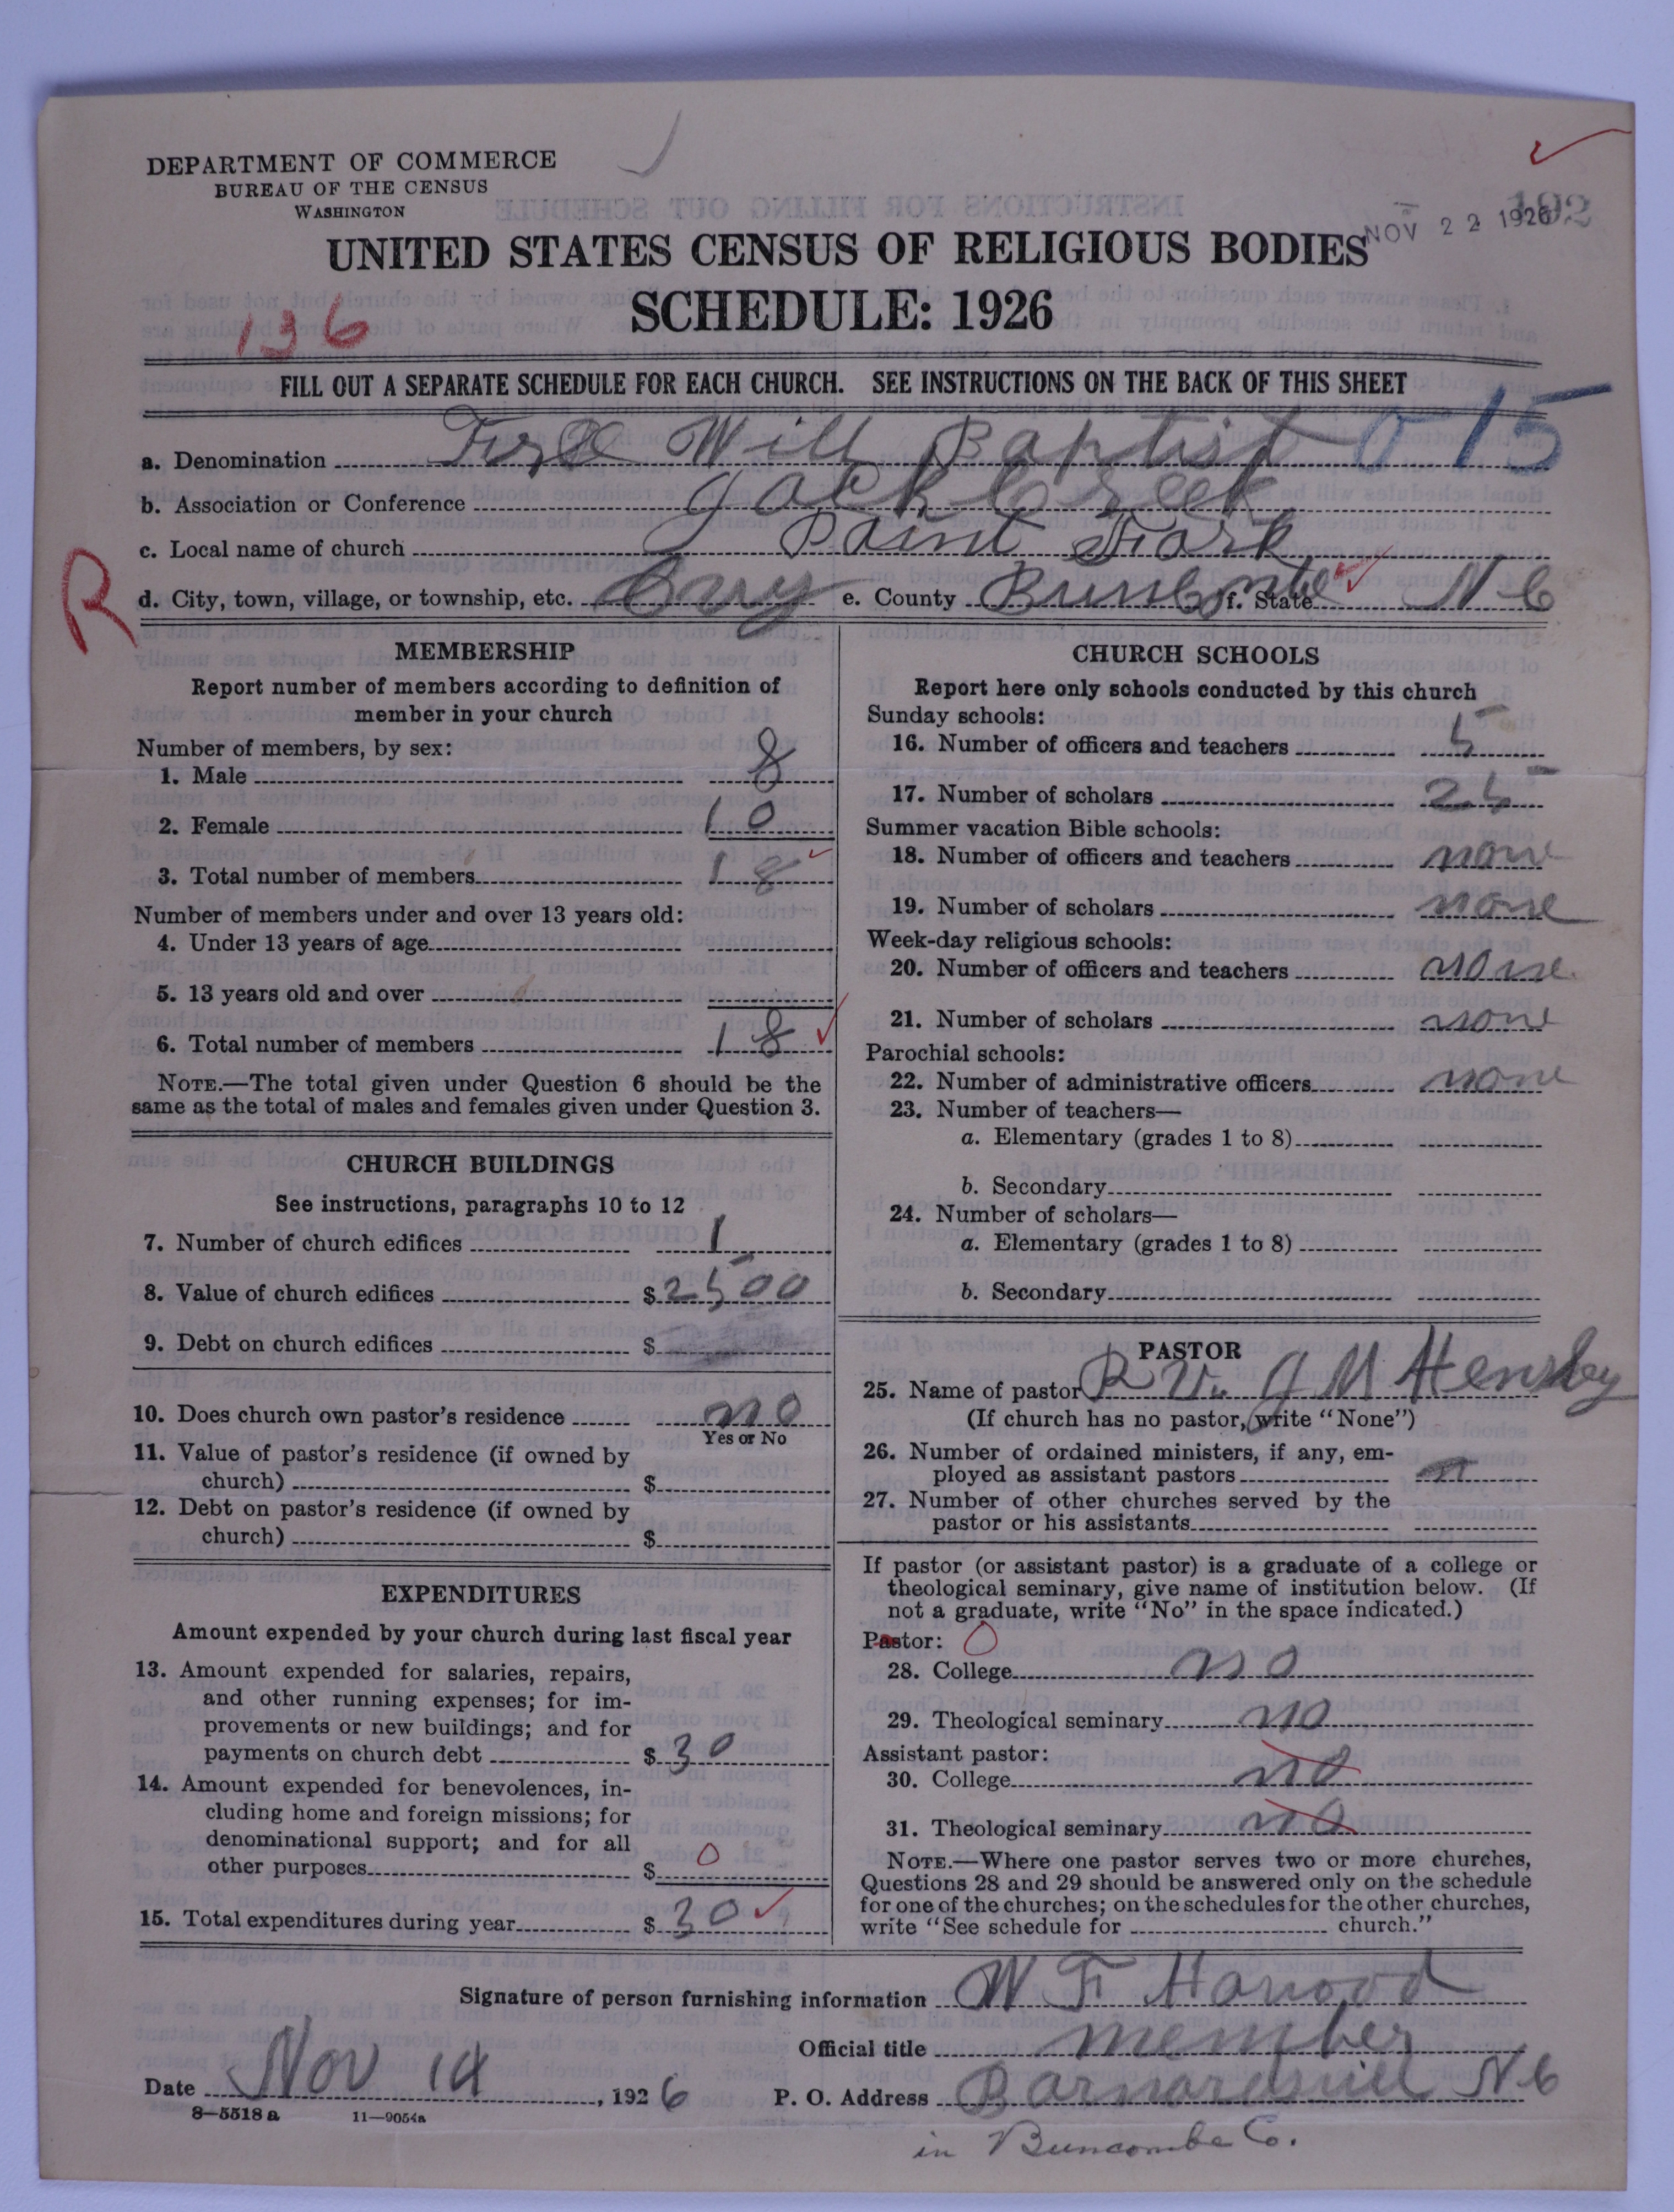 DEPARTMENT OF COMMERCE
BUREAU OF THE CENSUS
WASHINGTON
NOV 22 1926
UNITED STATES CENSUS OF RELIGIOUS BODIES
SCHEDULE: 1926
136
FILL OUT A SEPARATE SCHEDULE FOR EACH CHURCH. SEE INSTRUCTIONS ON THE BACK OF THIS SHEET
a. Denomination Free Will Baptist 0 15
b. Association or Conference Jack Creek
c. Local name of church Paint Fork
R
d. City, town, village, or township, etc. e. County f. State N C
MEMBERSHIP
Report number of members according to definition of
member in your church
Number of members, by sex:
1. Male 8
2. Female 10
3. Total number of members 18
Number of members under and over 13 years old:
4. Under 13 years of age
5. 13 years old and over
6. Total number of members 18
NOTE.—The total given under Question 6 should be the
same as the total of males and females given under Question 3.
CHURCH BUILDINGS
See instructions, paragraphs 10 to 12
7. Number of church edifices 1
8. Value of church edifices $ 2500
9. Debt on church edifices $
10. Does church own pastor's residence no
Yes or No
11. Value of pastor's residence (if owned by
church) $
12. Debt on pastor's residence (if owned by
church) $
EXPENDITURES
Amount expended by your church during last fiscal year
13. Amount expended for salaries, repairs,
and other running expenses; for im-
provements or new buildings; and for
payments on church debt $ 30
14. Amount expended for benevolences, in-
cluding home and foreign missions; for
denominational support; and for all
other purposes $ 0
15. Total expenditures during year $ 30
CHURCH SCHOOLS
Report here only schools conducted by this church
Sunday schools:
16. Number of officers and teachers 5
17. Number of scholars 25
Summer vacation Bible schools:
18. Number of officers and teachers none
19. Number of scholars none
Week-day religious schools:
20. Number of officers and teachers none
21. Number of scholars none
Parochial schools:
22. Number of administrative officers none
23. Number of teachers—
a. Elementary (grades 1 to 8)
b. Secondary
24. Number of scholars—
a. Elementary (grades 1 to 8)
b. Secondary
PASTOR
25. Name of pastor J M Hensley
(If church has no pastor, write "None")
26. Number of ordained ministers, if any, em-
ployed as assistant pastors
27. Number of other churches served by the
pastor or his assistants
If pastor (or assistant pastor) is a graduate of a college or
theological seminary, give name of institution below. (If
not a graduate, write "No" in the space indicated.)
Pastor: 0
28. College no
29. Theological seminary no
Assistant pastor:
30. College no
31. Theological seminary no
NOTE.—Where one pastor serves two or more churches,
Questions 28 and 29 should be answered only on the schedule
for one of the churches; on the schedules for the other churches,
write "See schedule for church."
Signature of person furnishing information W F
Official title member
Date Nov 14, 1926 P. O. Address Barnardsvill N C
8—5518 a 11—9054a
in Buncombe Co.